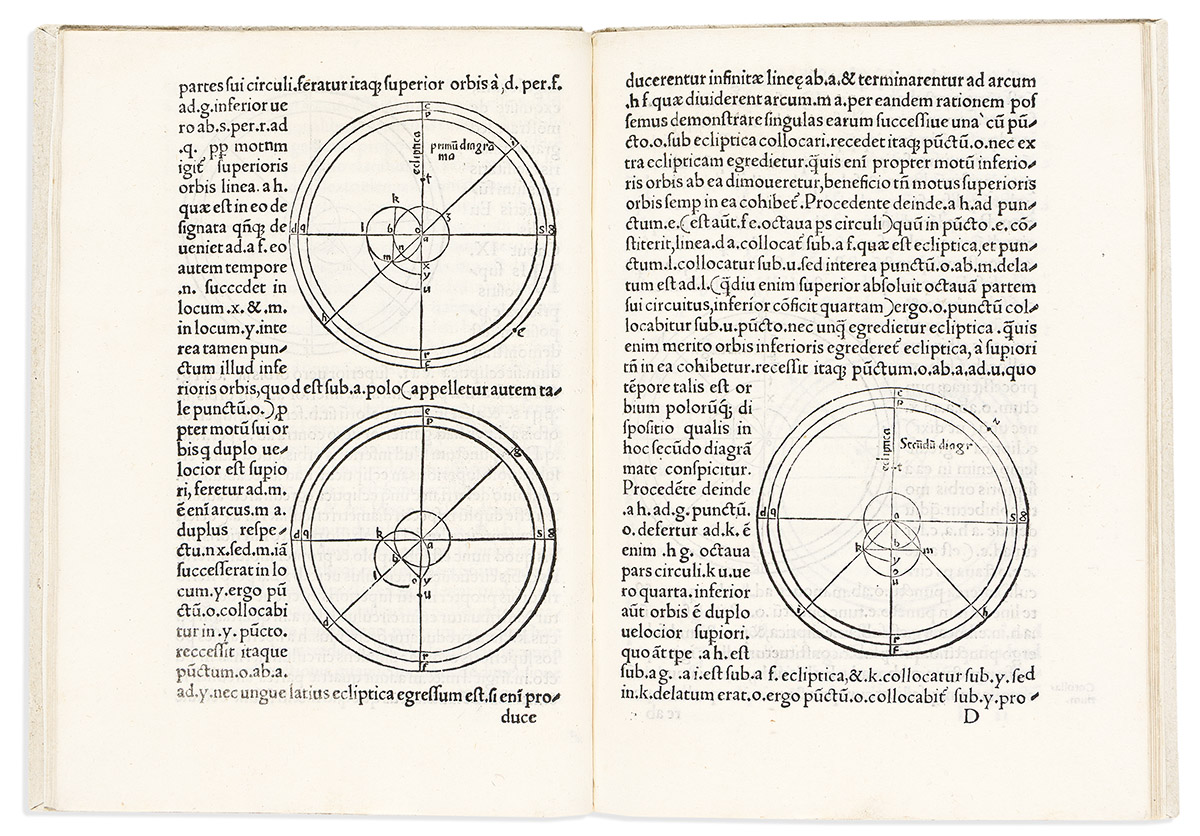 partes sui circuli.feratur itaq; superior orbis à ,d. per.f.
ad.g.inferior ue
ro ab.s.per.r.ad
.q. pp motum
igit̃ superioris
orbis linea. a h.
quæ est in eo de
signata qñq; de
ueniet ad.a f. eo
autem tempore
.n. succedet in
locum .x. & .m.
in locum.y.inte
rea tamen pun⸗
ctum illud infe
rioris orbis, quod est sub.a.polo(appelletur autem ta⸗
le punctũ.o.),p
pter motũ sui or
bis q duplo ue⸗
locior est supio
ri, feretur ad.m.
ẽ enĩ arcus.m a.
duplus respe⸗
ctu.n x.sed.m.iã
successerat in lo
cum.y.ergo pũ
ctũ.o.collocabi
tur in .y. pũcto.
reccessit itaque
pũctum.o.ab.a.
ad.y.nec ungue latius ecliptica egressum est.si enĩ pro⸗
duce
c
p
ecliptica
primũ diagrã
ma
i
t
k
z
d q
l
b
o
a
s g
n
m
x
y
u
h
e
r
f
e
p
g
d q
k
a
s d
b
l
o
y
u
d
r
f
ducerentur infinitæ lineę ab.a.& terminarentur ad arcum
.h f.quæ diuiderent arcum.m a.per eandem rationem pos
semus demonstrare singulas earum successiue una cũ pũ⸗
cto.o.sub ecliptica collocari.recedet itaq; pũctũ.o.nec ex
tra eclipticam egredietur.q̃uis enĩ propter motũ inferio⸗
ris orbis ab ea dimoueretur,beneficio tñ motus superioris
orbis semp in ea cohibet̃. Procedente deinde.a h.ad pun⸗
ctum.e.(est aũt.f e.octaua ps circuli)quũ in pũcto .e.cõ⸗
stiterit,linea.d a.collocat̃ sub.a f.quæ est ecliptica,et pun⸗
ctum.l.collocatur sub.u.sed interea punctũ.o.ab.m.dela⸗
tum est ad.l.(q̃diu enim superior absoluit octauã partem
sui circuitus,inferior cõficit quartam)ergo.o.punctũ col⸗
locabitur sub.u.pũcto.nec unq̃ egredietur ecliptica .q̃uis
enim merito orbis inferioris egrederet̃ ecliptica, à supiori
tñ in ea cohibetur.recessit itaq; pũctum.o.ab.a.ad.u.quo
tẽpore talis est or
bium polorũq; di
spositio qualis in
hoc secũdo diagrã
mate conspicitur.
Procedẽte deinde
.a h.ad.g.punctũ.
o. defertur ad.k. ẽ
enim .h g. octaua
pars circuli.k u.ue
ro quarta. inferior
aũt orbis ẽ duplo
uelocior supiori.
quo ãt tpe .a h. est
sub.a g. .a i.est sub.a f. ecliptica,&.k.collocatur sub.y.sed
in.k.delatum erat.o.ergo pũctũ.o.collocabit̃ sub.y.pro⸗
D
c
p
z
ecliptica
Secũdũ diagr̃
t
d q
a
s g
k
b
m
y
o
u
i
h
r
f